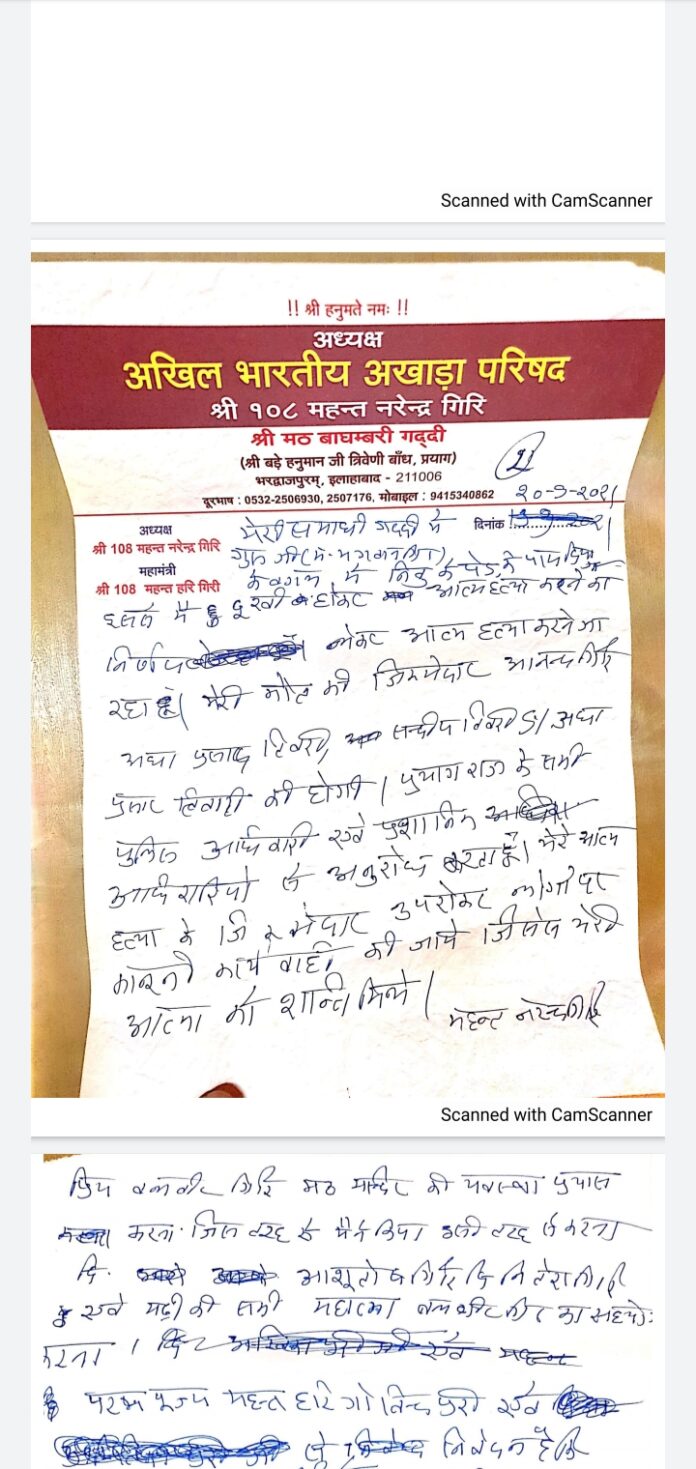 Scanned with CamScanner
!! श्री हनुमते नमः !!
अध्यक्ष
अखिल भारतीय अखाड़ा परिषद
श्री १०८ महन्त नरेन्द्र गिरि
श्री मठ बाघम्बरी गद्दी
(श्री बड़े हनुमान जी त्रिवेणी बाँध, प्रयाग)
भरद्वाजपुरम्, इलाहाबाद - 211006
दूरभाष : 0532-2506930, 2507176, मोबाइल : 9415340862
अध्यक्ष
श्री 108 महन्त नरेन्द्र गिरि
महामंत्री
श्री 108 महन्त हरि गिरी
दिनांक
मेरी समाधी गद्दी में
गुरू जी
के बगल में के पेड़ के पास
मै दुखी होकर आत्महत्या करने का
निर्णय लेकर आत्म हत्या करने जा
रहा हूँ। मेरी मौत की जिम्मेदार आनन्द गिरि
प्रसाद तिवारी सन्दीप तिवारी
तिवारी की होगी। प्रयागराज के सभी
पुलिस एवं
से अनुरोध करता हूँ। मेरे आत्म
हत्या के जिम्मेदार उपरोक्त लोगों पर
कानूनी कार्यवाही की जाये जिससे मेरी
आत्मा को शान्ति मिले।
महन्त नरेन्द्र गिरि
Scanned with CamScanner
प्रिय बलवीर गिरि मठ मन्दिर की प्रयास
करना जिस तरह से मैने किया उसी तरह से करना
आशुतोष गिरि
एवं गद्दी की सभी महात्मा बलवीर गिरि का
करना।
परम पूज्य महन्त हरि गोविन्द पुरी एवं
से निवेदन है कि